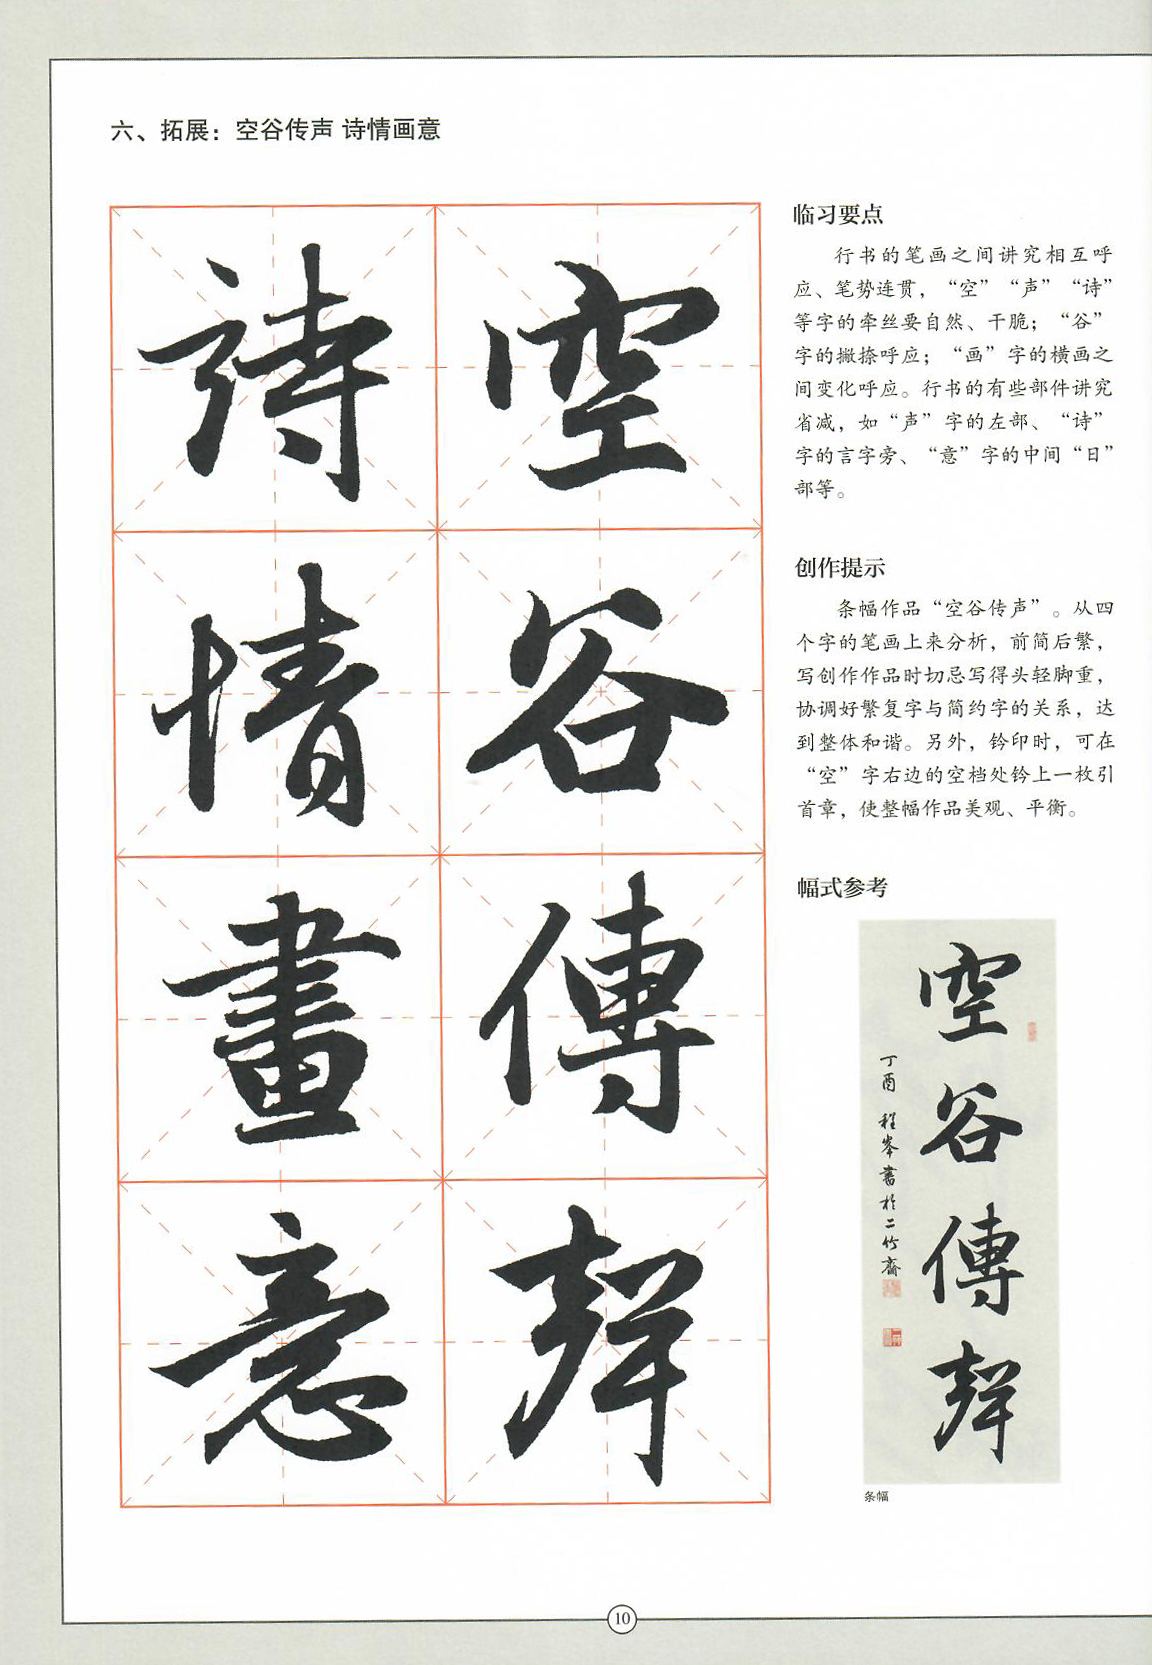 六、拓展：空谷传声 诗情画意
空谷傳聲
詩情畫意
临习要点
行书的笔画之间讲究相互呼
应、笔势连贯，“空”“声”“诗”
等字的牵丝要自然、干脆；“谷”
字的撇捺呼应；“画”字的横画之
间变化呼应。行书的有些部件讲究
省减，如“声”字的左部、“诗”
字的言字旁、“意”字的中间“日”
部等。
创作提示
条幅作品“空谷传声”。从四
个字的笔画上来分析，前简后繁，
写创作作品时切忌写得头轻脚重，
协调好繁复字与简约字的关系，达
到整体和谐。另外，钤印时，可在
“空”字右边的空档处钤上一枚引
首章，使整幅作品美观、平衡。
幅式参考
空谷傳聲
丁酉 程峯書於二竹齋
条幅
10